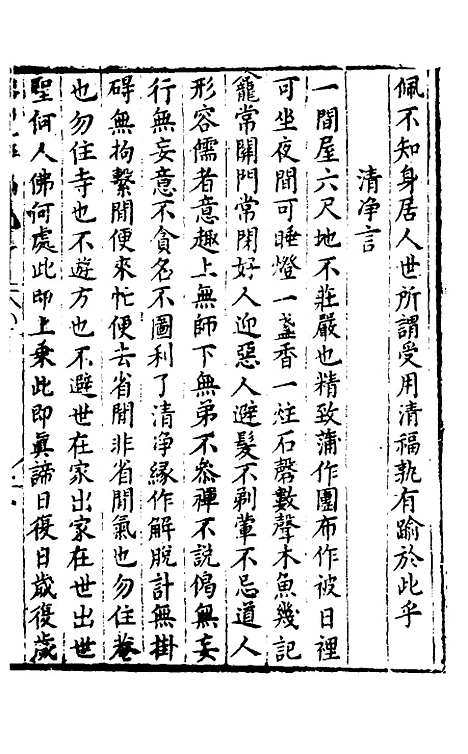 佩不知身居人世所謂受用清福孰有踰於此乎
清净言
一間屋六尺地不莊嚴也精致蒲作團布作被日裡
可坐夜間可睡燈一盞香一炷石磬數聲木魚幾記
龕常關門常閉好人迎惡人避髮不剃葷不忌道人
形容儒者意趣上無師下無弟不參禪不說偈無妄
行無妄意不貪名不圖利了清净緣作解脫計無掛
碍無拘繫閒便來忙便去省閒非省閒氣也勿住菴
也勿住寺也不遊方也不避世在家出家在世出世
聖何人佛何處此即上乘此即眞諦日復日歲復歲